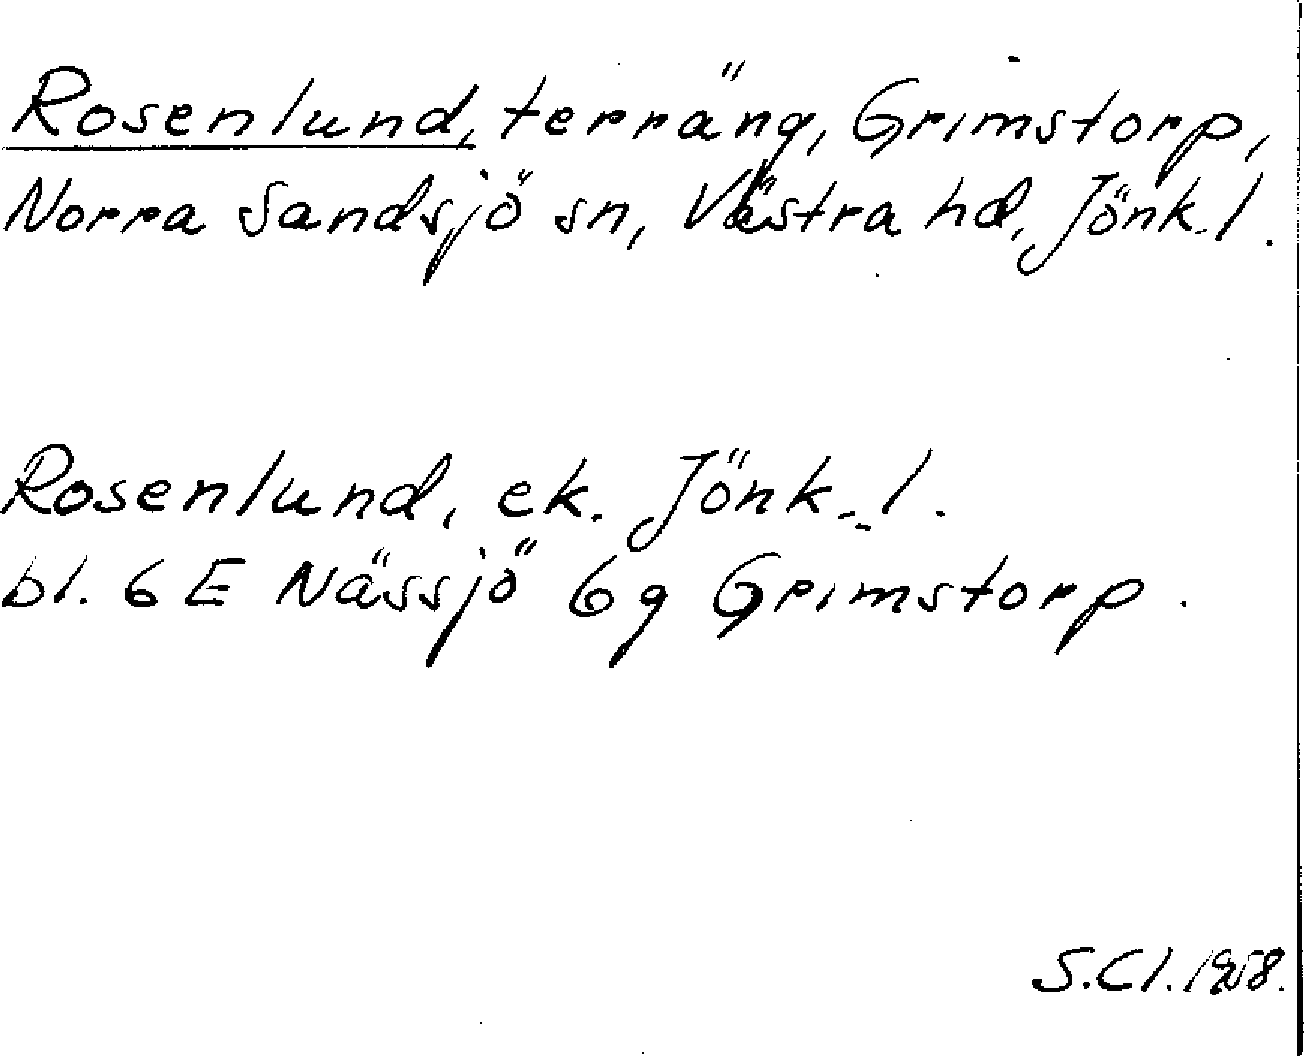 Rosenlund, terräng, Grimstorp,
Norra Sandsjö sn, Västra hd, Jönk. l.
Rosenlund, ek. Jönk. l.
bl. 6 E Nässjö 6g Grimstorp.
S.Cl. 1958.